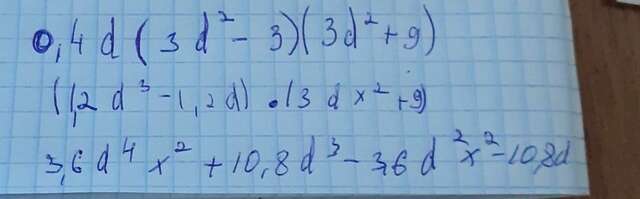 0,4d(3d²-3)(3d²+9)
(1,2d³-1,2d)·(3dx²+9)
3,6d⁴x²+10,8d³-3,6d²x²-10,8d